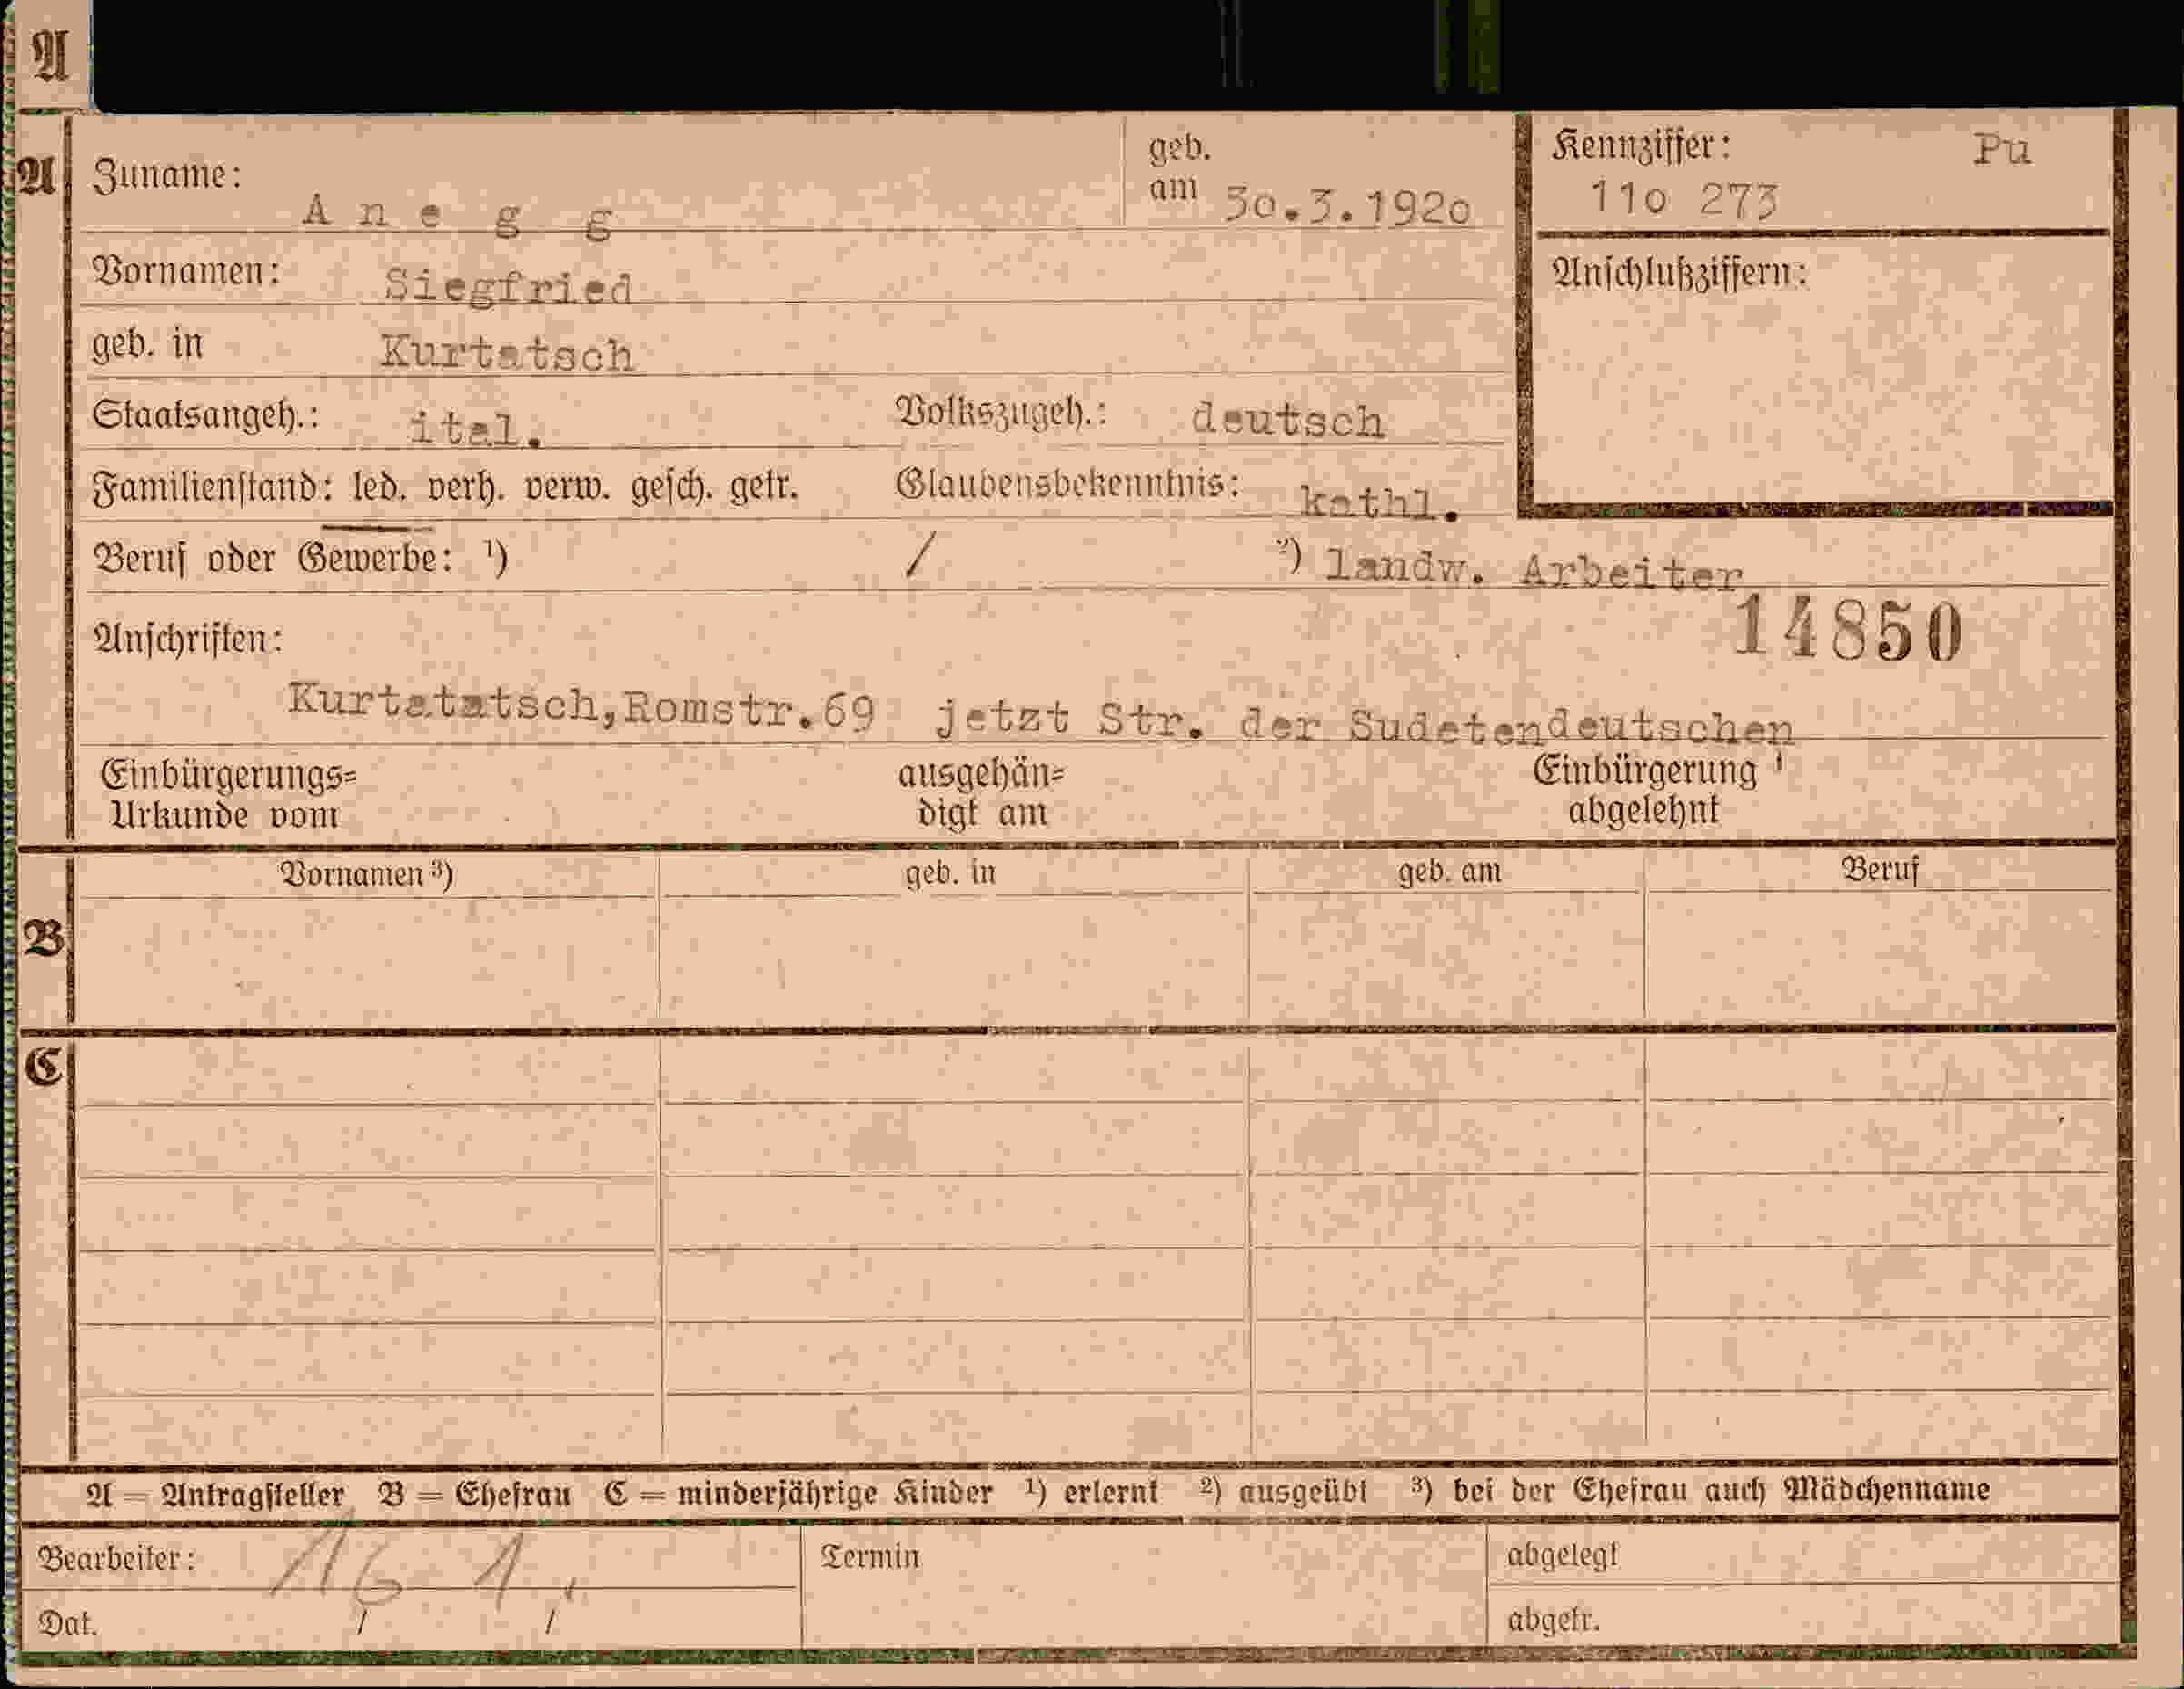 A
A Zuname: A n e g g geb. am 30.3.1920 Kennziffer: Pu
110 273
Vornamen: Siegfried Anschlußziffern:
geb. in Kurtatsch
Staatsangeh.: ital. Volkszugeh.: deutsch
Familienstand: led. verh. verw. gesch. getr. Glaubensbekenntnis: kathl.
Beruf oder Gewerbe: ¹) / ²) landw. Arbeiter
Anschriften: 14850
Kurtatatsch,Romstr.69 jetzt Str. der Sudetendeutschen
Einbürgerungs= ausgehän= Einbürgerung
Urkunde vom digt am abgelehnt
Vornamen ³) geb. in geb. am Beruf
B
C
A = Antragsteller B = Ehefrau C = minderjährige Kinder ¹) erlernt ²) ausgeübt ³) bei der Ehefrau auch Mädchenname
Bearbeiter: 16 1 Termin abgelegt
Dat. abgetr.